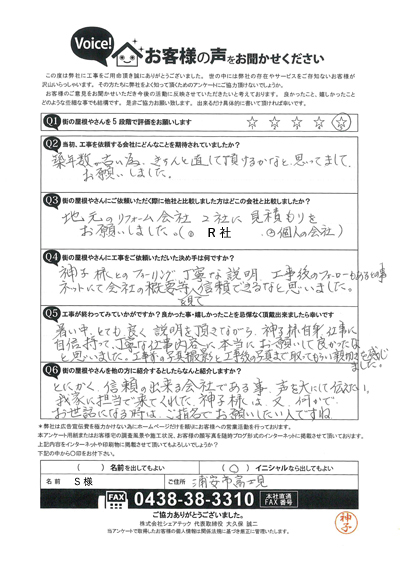 Voice!
お客様の声をお聞かせください
この度は弊社に工事をご用命頂き誠にありがとうございました。世の中には弊社の存在やサービスをご存知ないお客様が
沢山いらっしゃいます。その方たちに弊社をよく知って頂くためのアンケートにご協力頂けないでしょうか。
お客様のご意見をお聞かせいただき今後の活動に反映させていただきたいと考えております。良かったこと、嬉しかったこと
どのような些細な事でも結構です。是非ご協力お願い致します。出来るだけ具体的に書いて頂ければ幸いです。
Q1 街の屋根やさんを5段階で評価をお願いします ☆ ☆ ☆ ☆ ☆
Q2 当初、工事を依頼する会社にどんなことを期待されていましたか?
築年数が古い為、きちんと直して頂けるかなと、思ってまして、
お願いしました。
Q3 街の屋根やさんにご依頼いただく際に他社と比較しました方はどこの会社と比較しましたか?
地元のリフォーム会社 2社に見積もりを
お願いしました。( R社 ②個人の会社)
Q4 街の屋根やさんに工事をご依頼いただいた決め手は何ですか?
神子様とのフィーリング、丁寧な説明、工事後のフォローもある事
ネットにて会社の概要等を見て信頼できるなと思いました。
Q5 工事が終わってみていかがですか?良かった事・嬉しかったことを忌憚なく頂戴出来ましたら幸いです
暑い中、とても良く説明を頂きながら、神子様自身仕事に
自信持って、丁寧な仕事内容で、本当にお願いして良かったな
と思いました。工事前の写真撮影と工事後の写真まで取ってもらい親切さを感じ
ました。
Q6 街の屋根やさんを他の方に紹介するとしたらなんと紹介しますか?
とにかく、信頼の出来る会社である事、声を大にして伝えたい。
我家に担当で来てくれた、神子様には、又、何かで
お世話になる時は、ご指名でお願いしたい人ですね
*弊社は広告宣伝費を極力かけない為にホームページだけを頼りにお客様への営業活動を行っております。
本アンケート用紙またはお客様宅の調査風景や施工状況、お客様の顔写真を随時ブログ形式のインターネットに掲載させて頂いております。
上記内容をインターネットや印刷物に掲載させて頂いてもよろしいでしょうか?
下記の中から〇印をお付け下さい。
( )名前を出してもよい (〇)イニシャルなら出してもよい
S様 ご住所 浦安市富士見
FAX 0438-38-3310 本社直通 FAX番号
ご協力ありがとうございました。
株式会社シェアテック 代表取締役 大久保 誠二
当アンケートで取得したお客様の個人情報は関係法規に基づき厳正に管理いたします。
神子